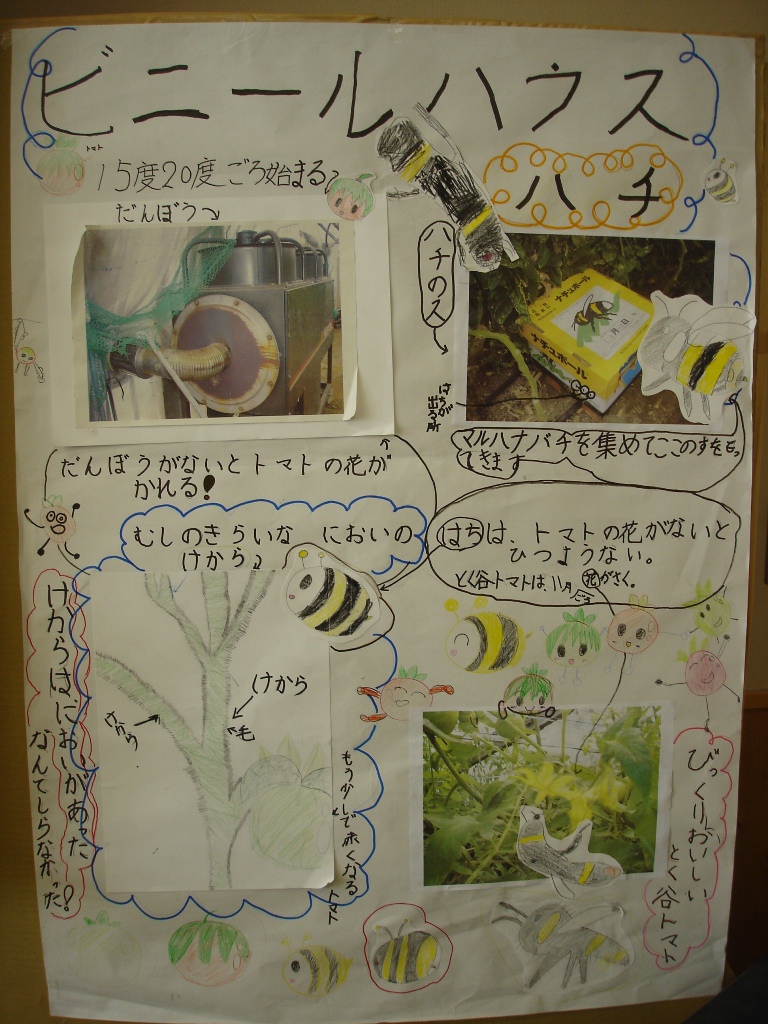 ビニールハウス
トマト
15度20度ごろ始まる
だんぼう
ハチ
ハチのス
ナチュポール
ナチュポール
月 日
はちが
出る所
マルハナバチを集めてここのすをもっ
てきます
だんぼうがないとトマトの花が
かれる!
むしのきらいな においの
けから
はちは、トマトの花がないと
ひつようない。
とく谷トマトは、11月ごろ花がさく。
けから
けから
毛
けからはにおいがあった
なんてしらなかった!
もう少しで赤くなる
トマト
びっくりおいしい
とく谷トマト